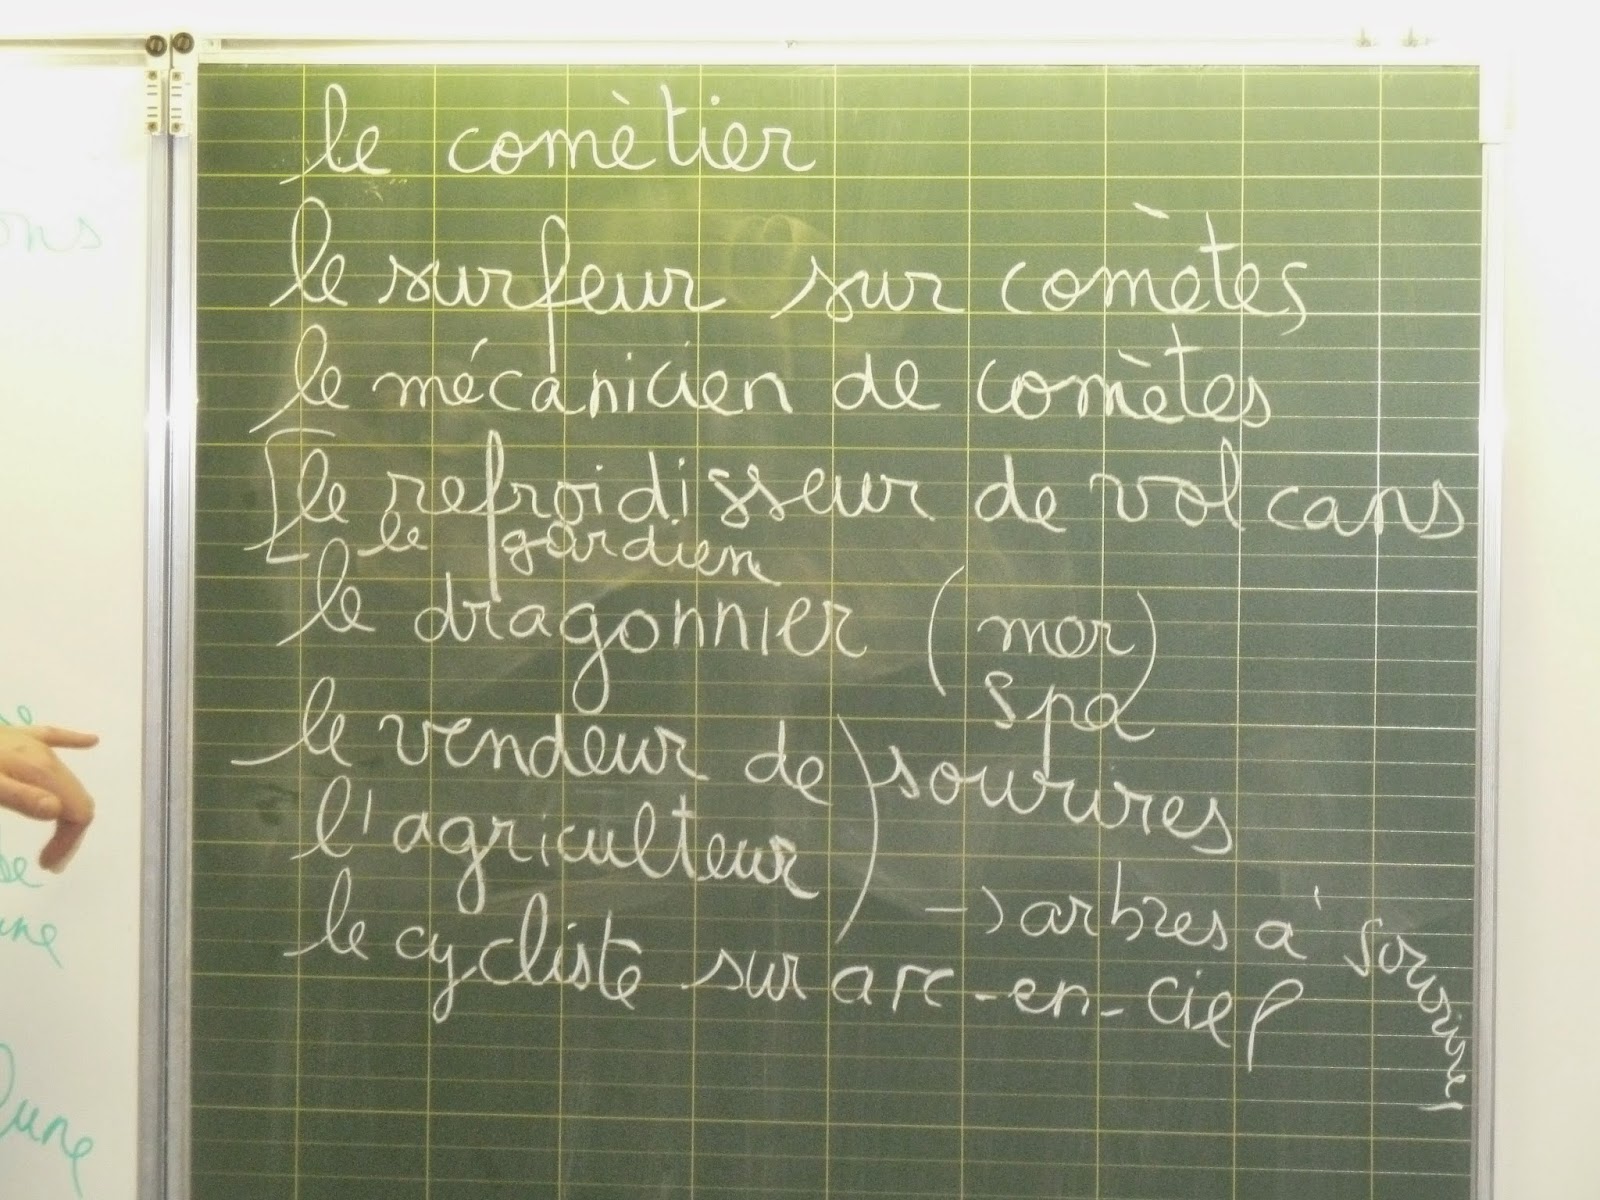 le comètier
le surfeur sur comètes
le mécanicien de comètes
[le refroidisseur de volcans
le gardien
le dragonnier (mer)
spa
le vendeur de) sourires
l'agriculteur) → arbres à sourires
le cycliste sur arc-en-ciel
ons
une
lune